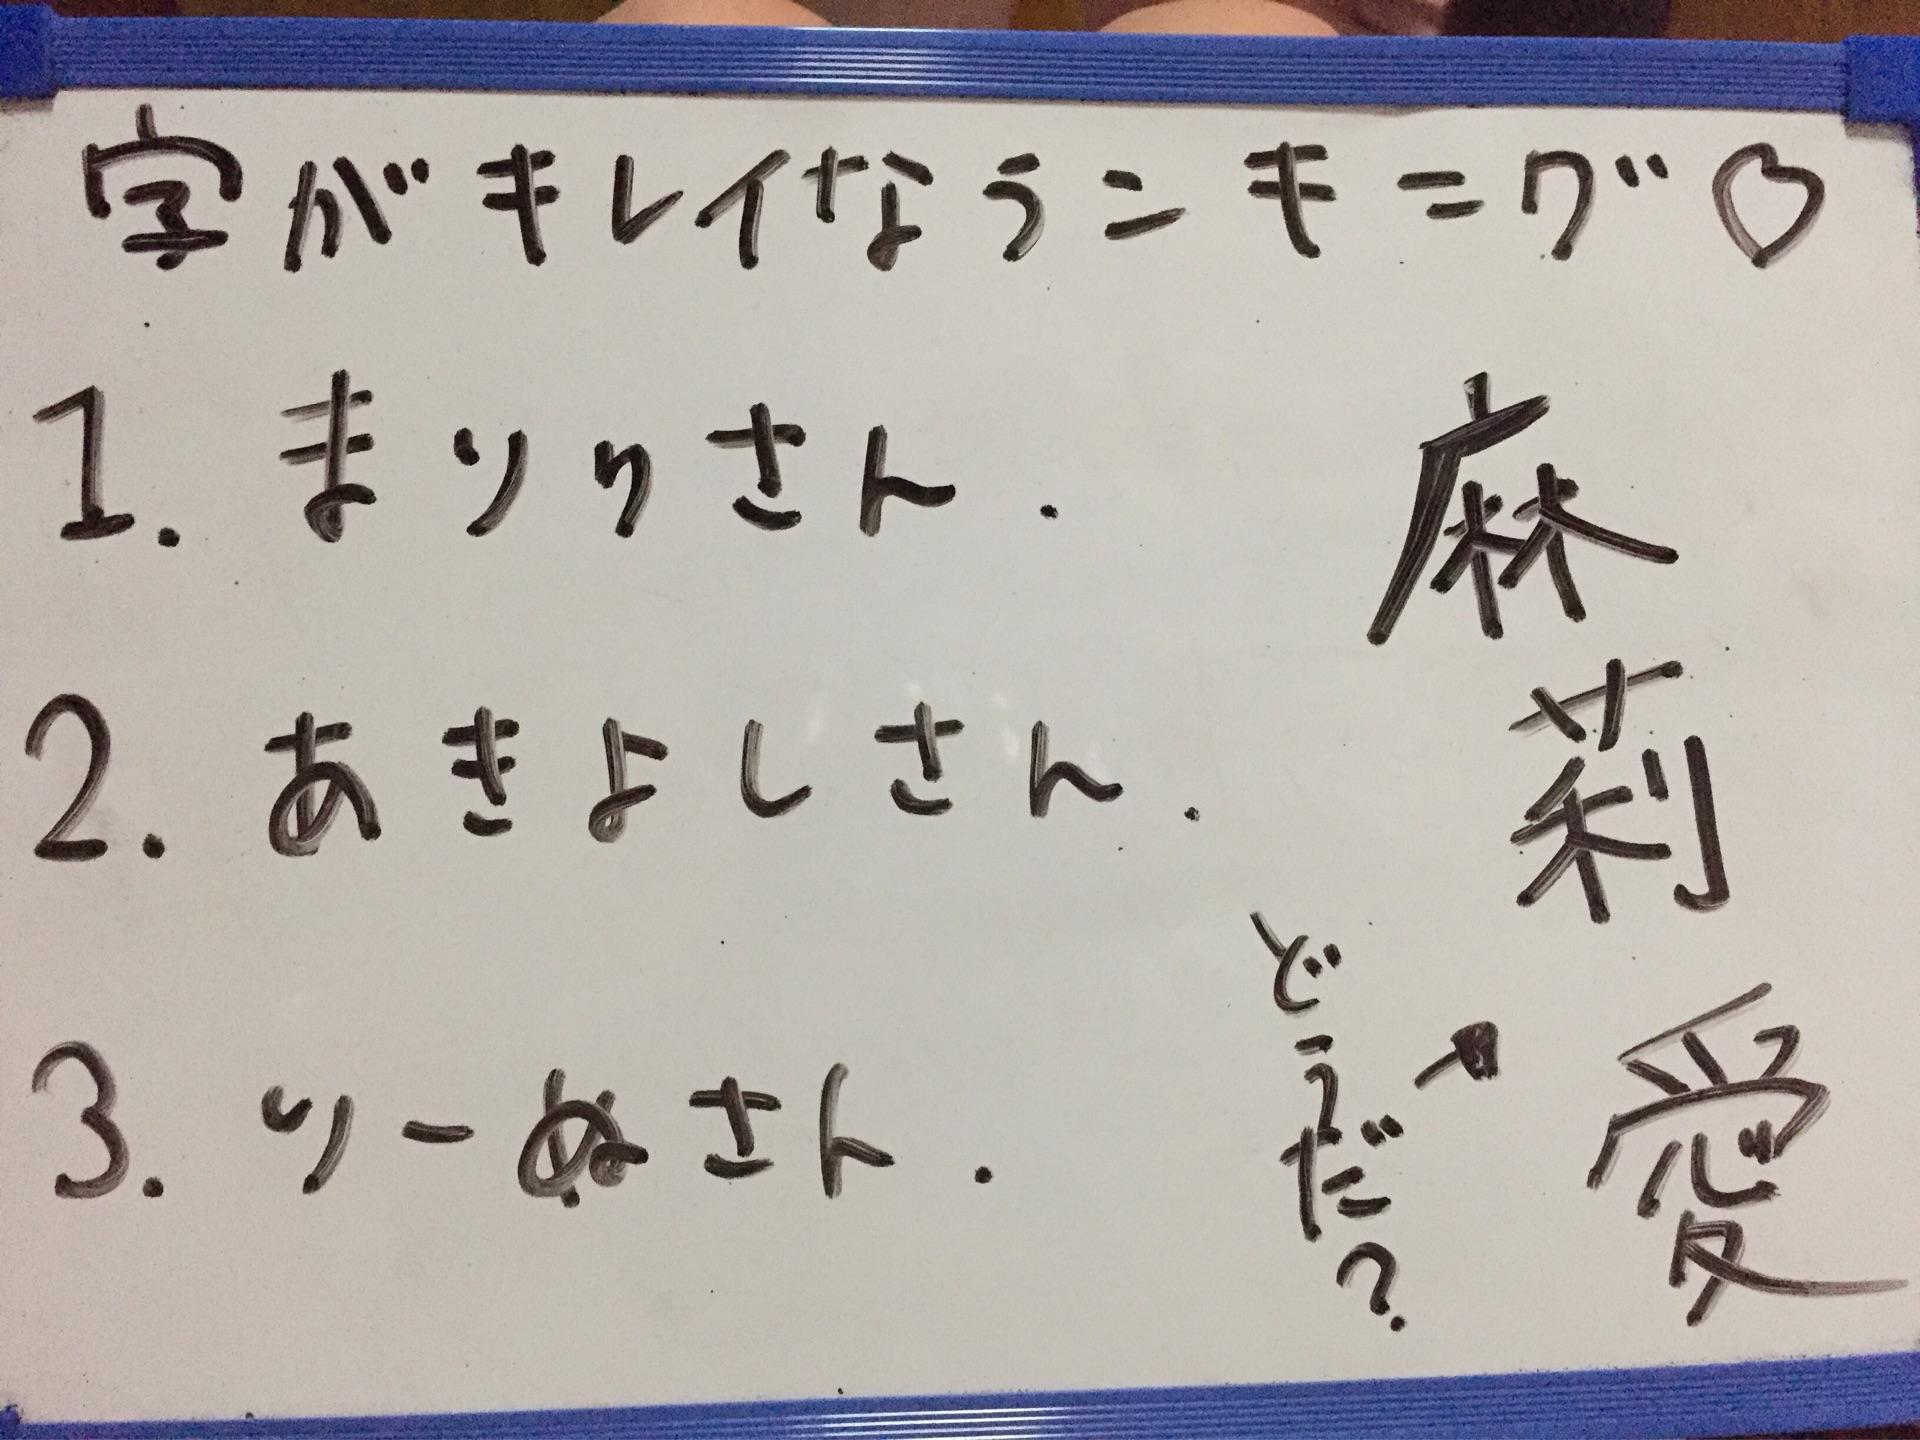 字がキレイなランキング♡
1. まりりさん.
2. あきよしさん.
3. りーぬさん.
麻莉愛
どうだ?